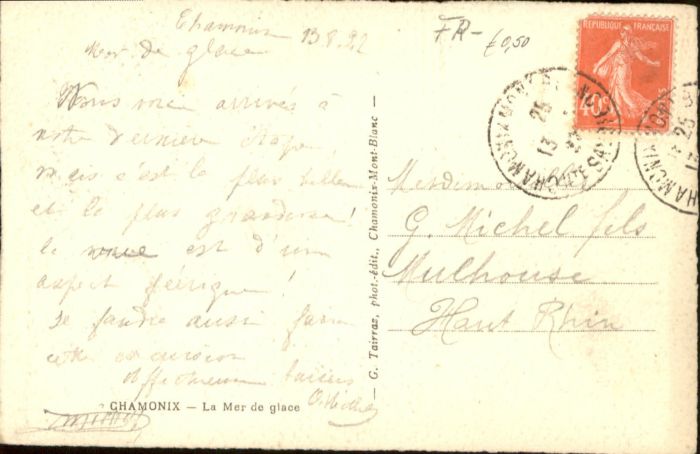 Chamonix 13.8.22
Mer de glace
Nous voici arrivés à
notre dernière étape,
mais c'est la plus belle
et la plus grandiose!
le est d'un
aspect féerique!
Il faudra aussi faire
cette excursion
Affectueux baisers
CHAMONIX – La Mer de glace
G. Tairraz, phot.-édit., Chamonix-Mont-Blanc
FR- €0,50
REPUBLIQUE FRANÇAISE
40c
CHAMONIX
HTE SAVOIE
13
CHAMONIX
Mesdemoiselles
G. Michel fils
Mulhouse
Haut Rhin